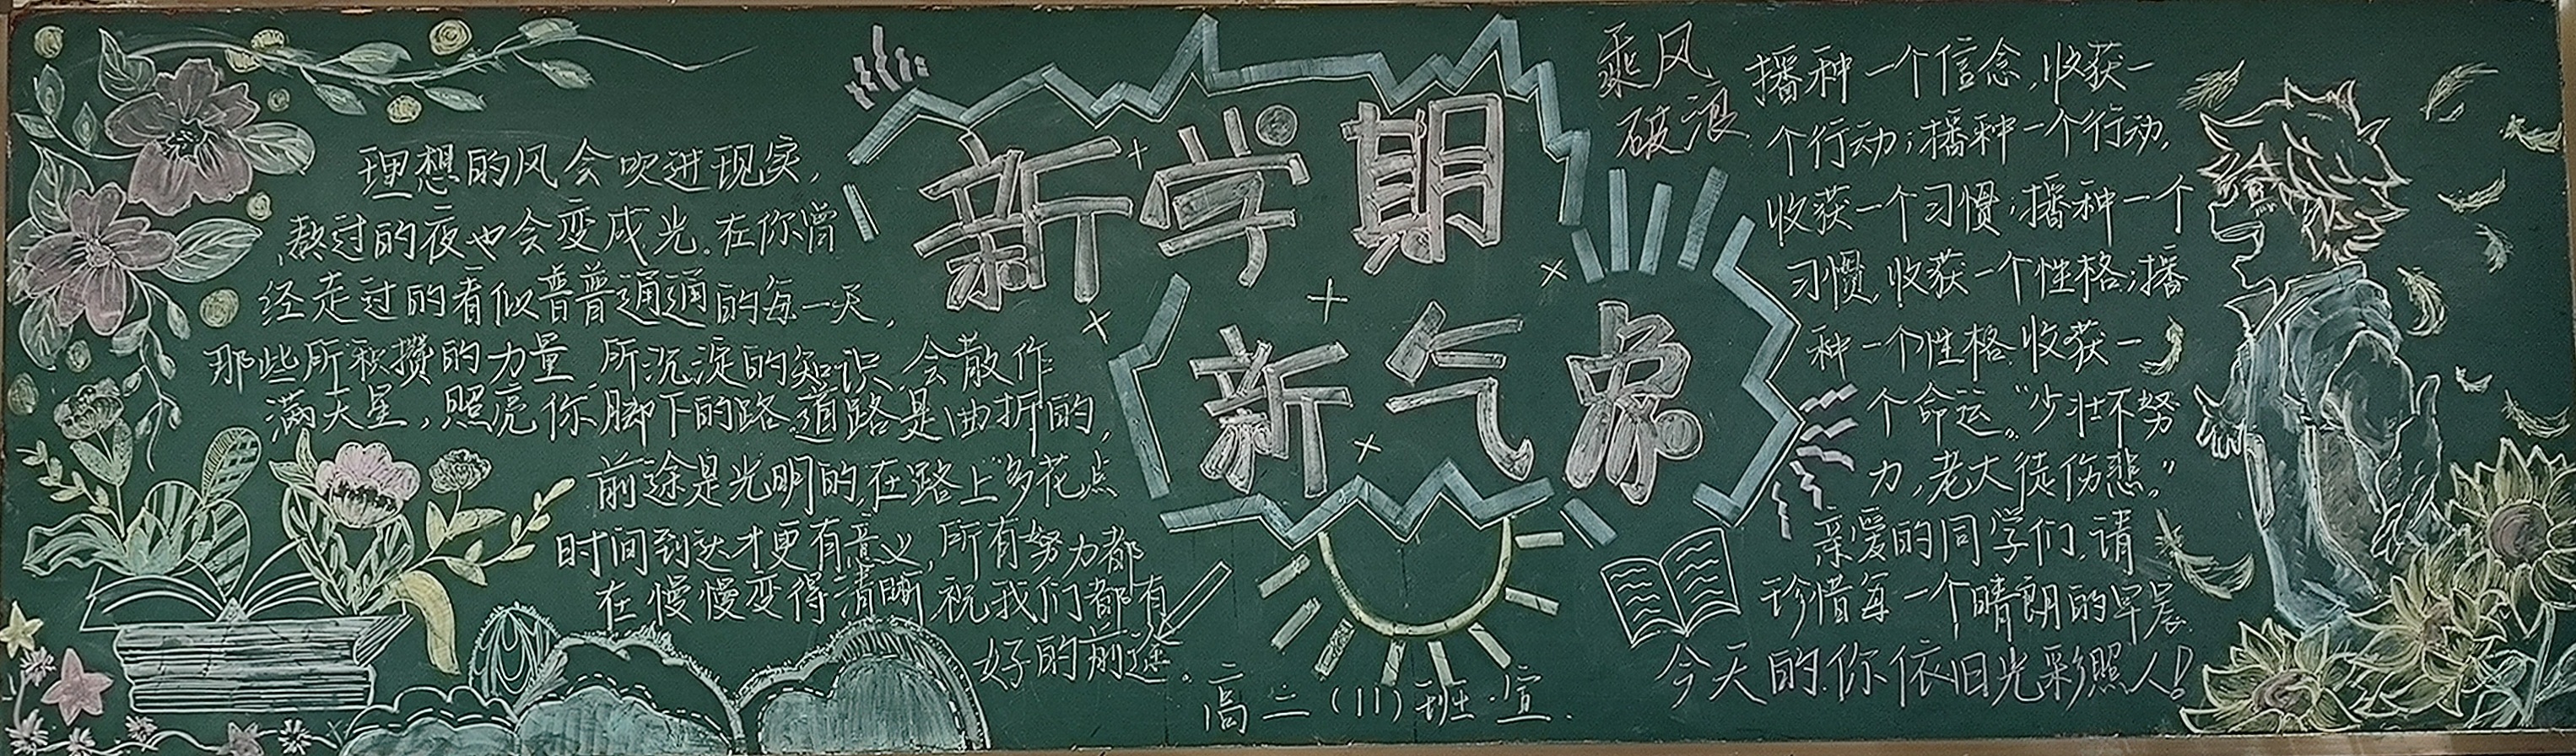 理想的风会吹进现实，
熬过的夜也会变成光。在你曾
经走过的看似普普通通的每一天，
那些所积攒的力量 所沉淀的知识 会散作
满天星，照亮你脚下的路。道路是曲折的，
前途是光明的，在路上多花点
时间到达才更有意义，所有努力都
在慢慢变得清晰，祝我们都有
好的前途。
新学期
新气象
高二（11）班·宣
乘风
破浪
播种一个信念，收获一
个行动；播种一个行动，
收获一个习惯；播种一个
习惯，收获一个性格；播
种一个性格，收获一
个命运。“少壮不努
力，老大徒伤悲。”
亲爱的同学们，请
珍惜每一个晴朗的早晨
今天的你依旧光彩照人！